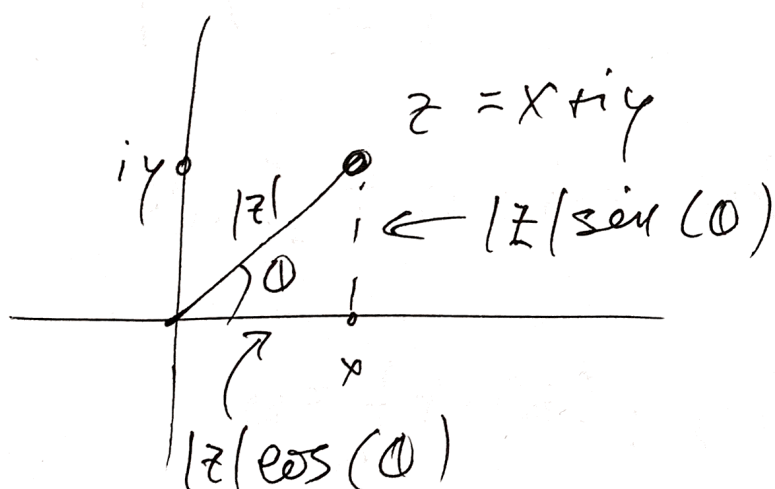 z = x + iy
iy
|z|
← |z| sin (θ)
θ
x
|z| cos (θ)